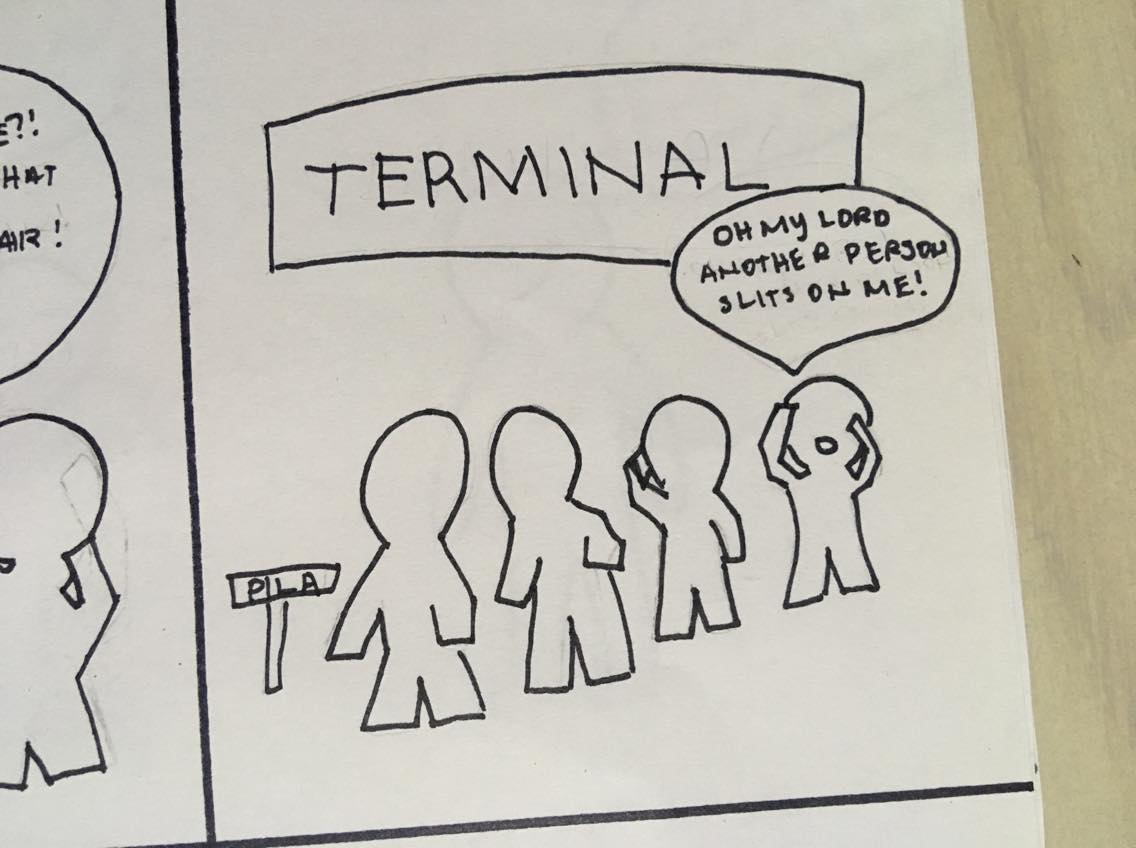 E?!
HAT
AIR!
TERMINAL
OH MY LORD
ANOTHER PERSON
SLITS ON ME!
PILA